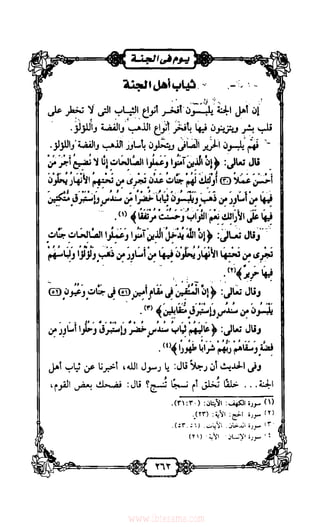 يوم فى الجنة
ثياب أهل الجنة
إن أهل الجنة يلبسون أفخر أنواع الثياب التى لا تخطر على
قلب بشر ويتزينون فيها بأفخر أنواع الذهب والفضة واللؤلؤ.
فهم يلبسون الحرير الصافى ويتحلون بأساور الذهب والفضة واللؤلؤ.
قال تعالى: ﴿إِنَّ الَّذِينَ آمَنُوا وَعَمِلُوا الصَّالِحَاتِ إِنَّا لا نُضِيعُ أَجْرَ مَنْ
أَحْسَنَ عَمَلاً (٣٠) أُوْلَئِكَ لَهُمْ جَنَّاتُ عَدْنٍ تَجْرِي مِن تَحْتِهِمُ الأَنْهَارُ يُحَلَّوْنَ
فِيهَا مِنْ أَسَاوِرَ مِن ذَهَبٍ وَيَلْبَسُونَ ثِيَابًا خُضْرًا مِّن سُندُسٍ وَإِسْتَبْرَقٍ مُّتَّكِئِينَ
فِيهَا عَلَى الأَرَائِكِ نِعْمَ الثَّوَابُ وَحَسُنَتْ مُرْتَفَقًا﴾ (١).
وقال تعالى: ﴿إِنَّ اللَّهَ يُدْخِلُ الَّذِينَ آمَنُوا وَعَمِلُوا الصَّالِحَاتِ جَنَّاتٍ
تَجْرِي مِن تَحْتِهَا الأَنْهَارُ يُحَلَّوْنَ فِيهَا مِنْ أَسَاوِرَ مِن ذَهَبٍ وَلُؤْلُؤًا وَلِبَاسُهُمْ
فِيهَا حَرِيرٌ﴾ (٢).
وقال تعالى: ﴿إِنَّ الْمُتَّقِينَ فِي مَقَامٍ أَمِينٍ (٥١) فِي جَنَّاتٍ وَعُيُونٍ (٥٢)
يَلْبَسُونَ مِن سُندُسٍ وَإِسْتَبْرَقٍ مُّتَقَابِلِينَ﴾ (٣).
وقال تعالى: ﴿عَالِيَهُمْ ثِيَابُ سُندُسٍ خُضْرٌ وَإِسْتَبْرَقٌ وَحُلُّوا أَسَاوِرَ مِن
فِضَّةٍ وَسَقَاهُمْ رَبُّهُمْ شَرَابًا طَهُورًا﴾ (٤).
وفى الحديث أن رجلاً قال: يا رسول الله، أخبرنا عن ثياب أهل
الجنة... خلقًا تُخلق أم نسجًا تُنسج؟ قال: فضحك بعض القوم،
(١) سورة الكهف: الآيتان: (٣٠، ٣١).
(٢) سورة الحج: الآية: (٢٣).
(٣) سورة الدخان: الآيات: (٥١، ٥٣).
(٤) سورة الإنسان: الآية: (٢١)
٢٦٣